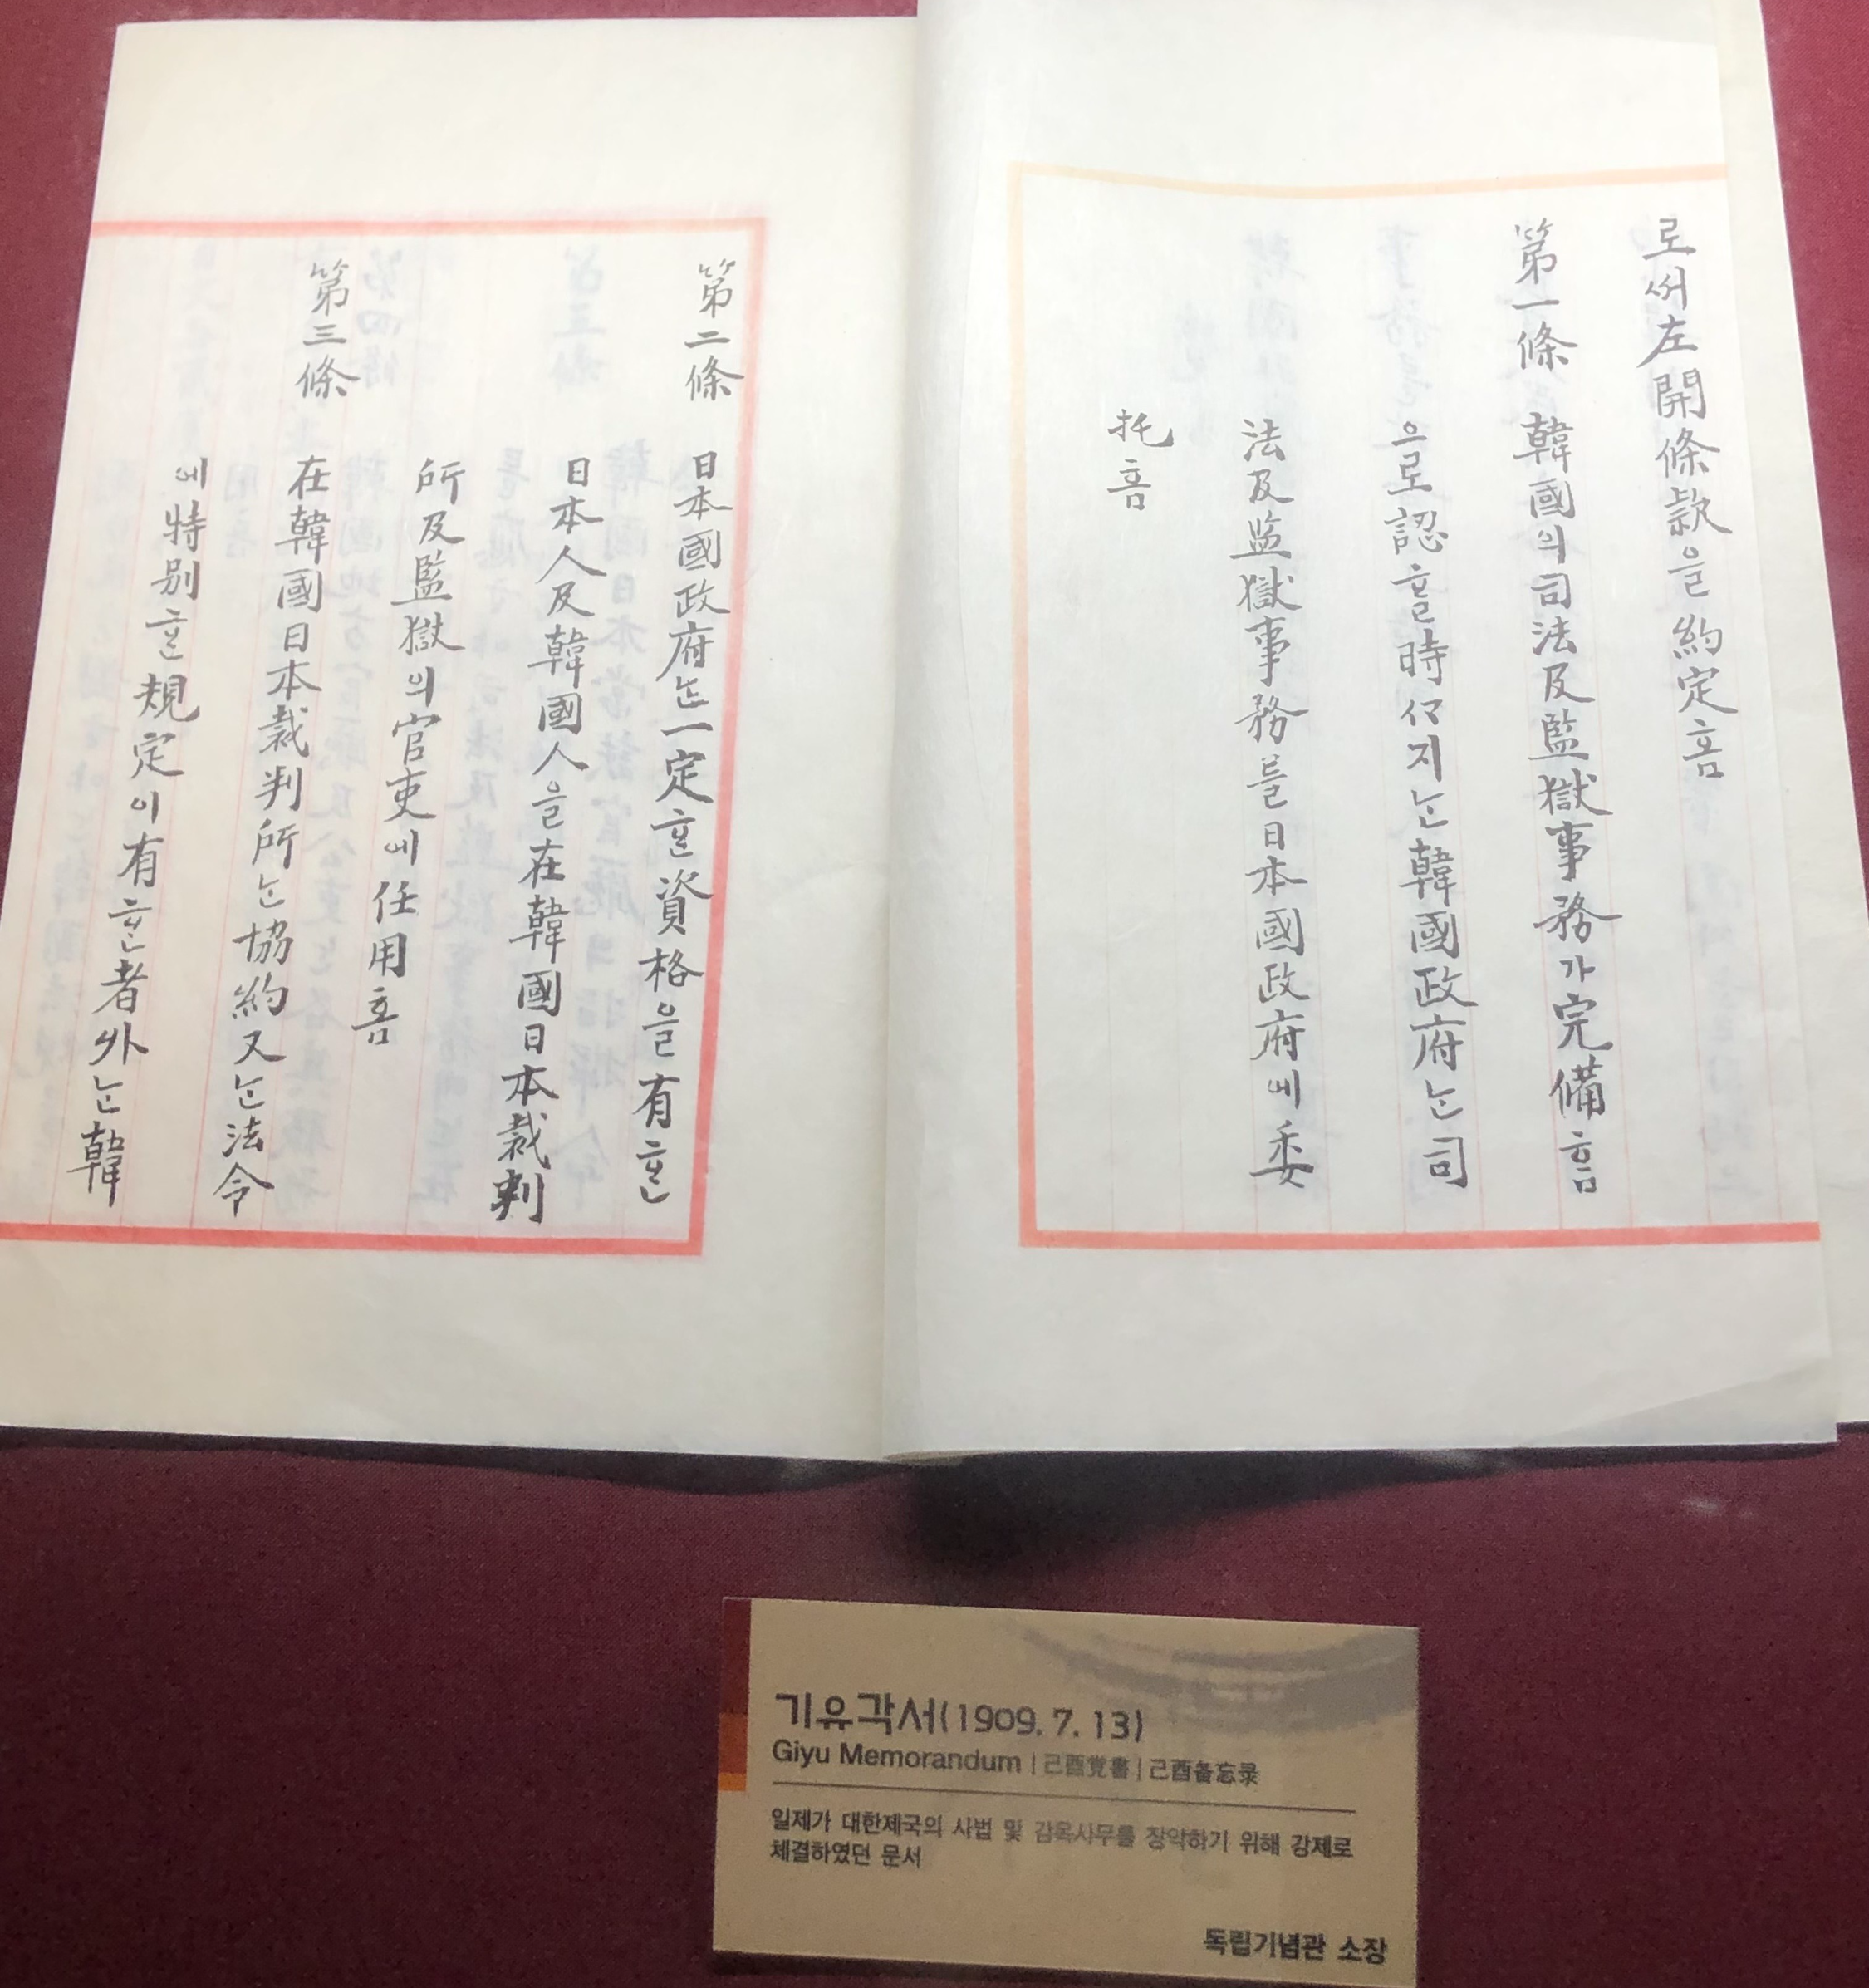 로써左開條款을約定홈
第一條 韓國의司法及監獄事務가完備홈
으로認할時까지는韓國政府는司
法及監獄事務를日本國政府에委
托홈
第二條 日本國政府는一定한資格을有한
日本人及韓國人을在韓國日本裁判
所及監獄의官吏에任用홈
第三條 在韓國日本裁判所는協約又는法令
에特別한規定이有한者外는韓
기유각서(1909. 7. 13)
Giyu Memorandum | 己酉覚書 | 己酉备忘录
일제가 대한제국의 사법 및 감옥사무를 장악하기 위해 강제로
체결하였던 문서
독립기념관 소장